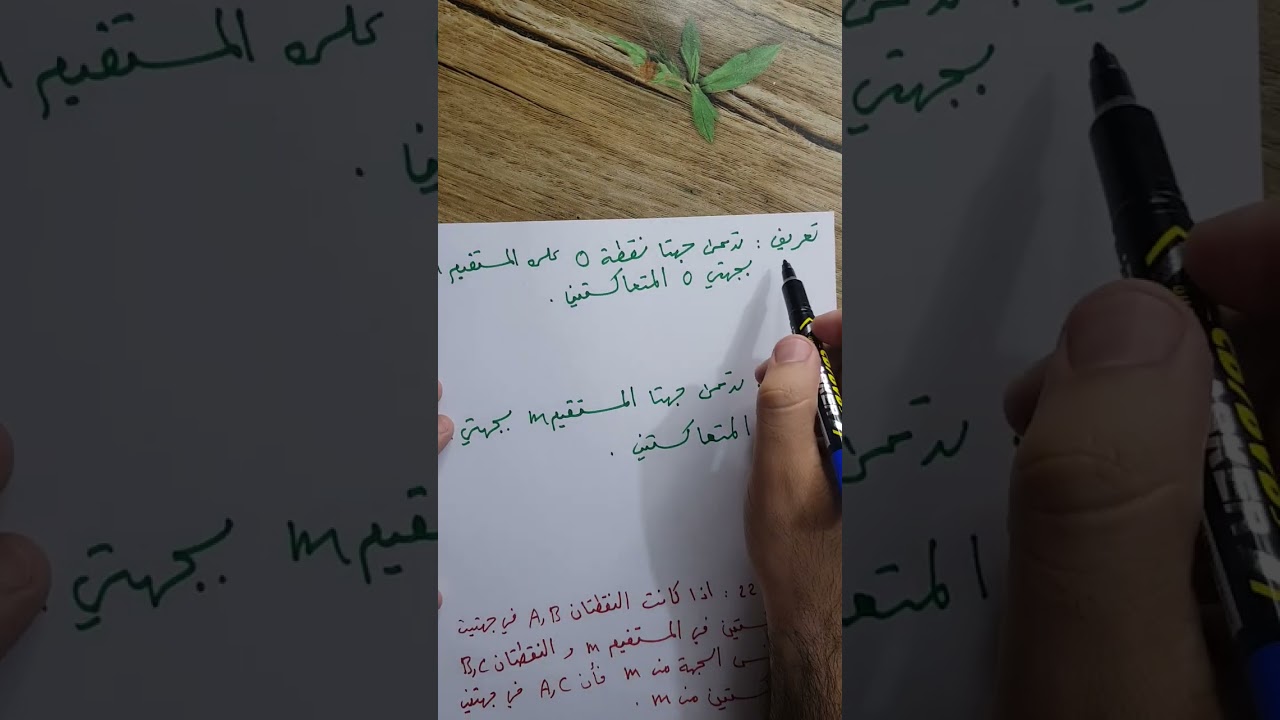 تعريف : تدعى جهتا نقطة O على المستقيم
بجهتي O المتعاكستين .
تدعى جهتا المستقيم m بجهتي
المتعاكستين .
22 : اذا كانت النقطتان A,B في جهتين
في المستقيم m و النقطتان B,C
الجهة من m فأن A,C في جهتين
من m .